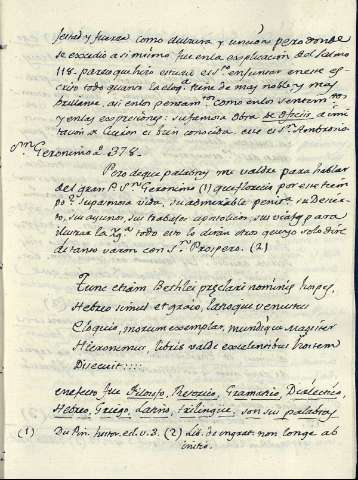 y fuerza como dulzura y uncion; pero donde
se excedio a si mismo fue en la explicacion del Salmo
118. para que hizo este en su en ese es-
crito todo quanto la eloqa. tiene de mas noble, y mas
brillante, asi en los pensamtos. como en los sentimtos.
y en las expresiones: su famosa obra de Oficiis a imi-
tacion de Ciceron es bien conocida. este es Sn. Ambrosio
Sn. Geronimo ao. 378.
Pero de que palabras me valdre para hablar
del gran P. Sn. Geronimo (1) que florecio por este tiem
po? su pasmosa vida, su admirable penita. su Desier-
to, sus ayunos, sus trabajos apostolicos, sus viages para
ilustrar la todo esto lo diran otros que yo solo dire
de tanto varon con Sn. Prospero. (2)
Tunc etiam Bethlei præclari nominis hospes,
Hebreo simul et graio, latioque venustus
Eloquio, morum exemplar, mundique magister
Hieronimus, libris valde excelentibus hostem
Discuit::::
en efecto fue Filosofo, Retorico, Gramatico, Dialectico,
Hebreo, Griego, Latino, trilingue, son sus palabras
(1) Du Pin. histor. ecl. v. 3. (2) Lib. de ingrat. non longe ab
initio.